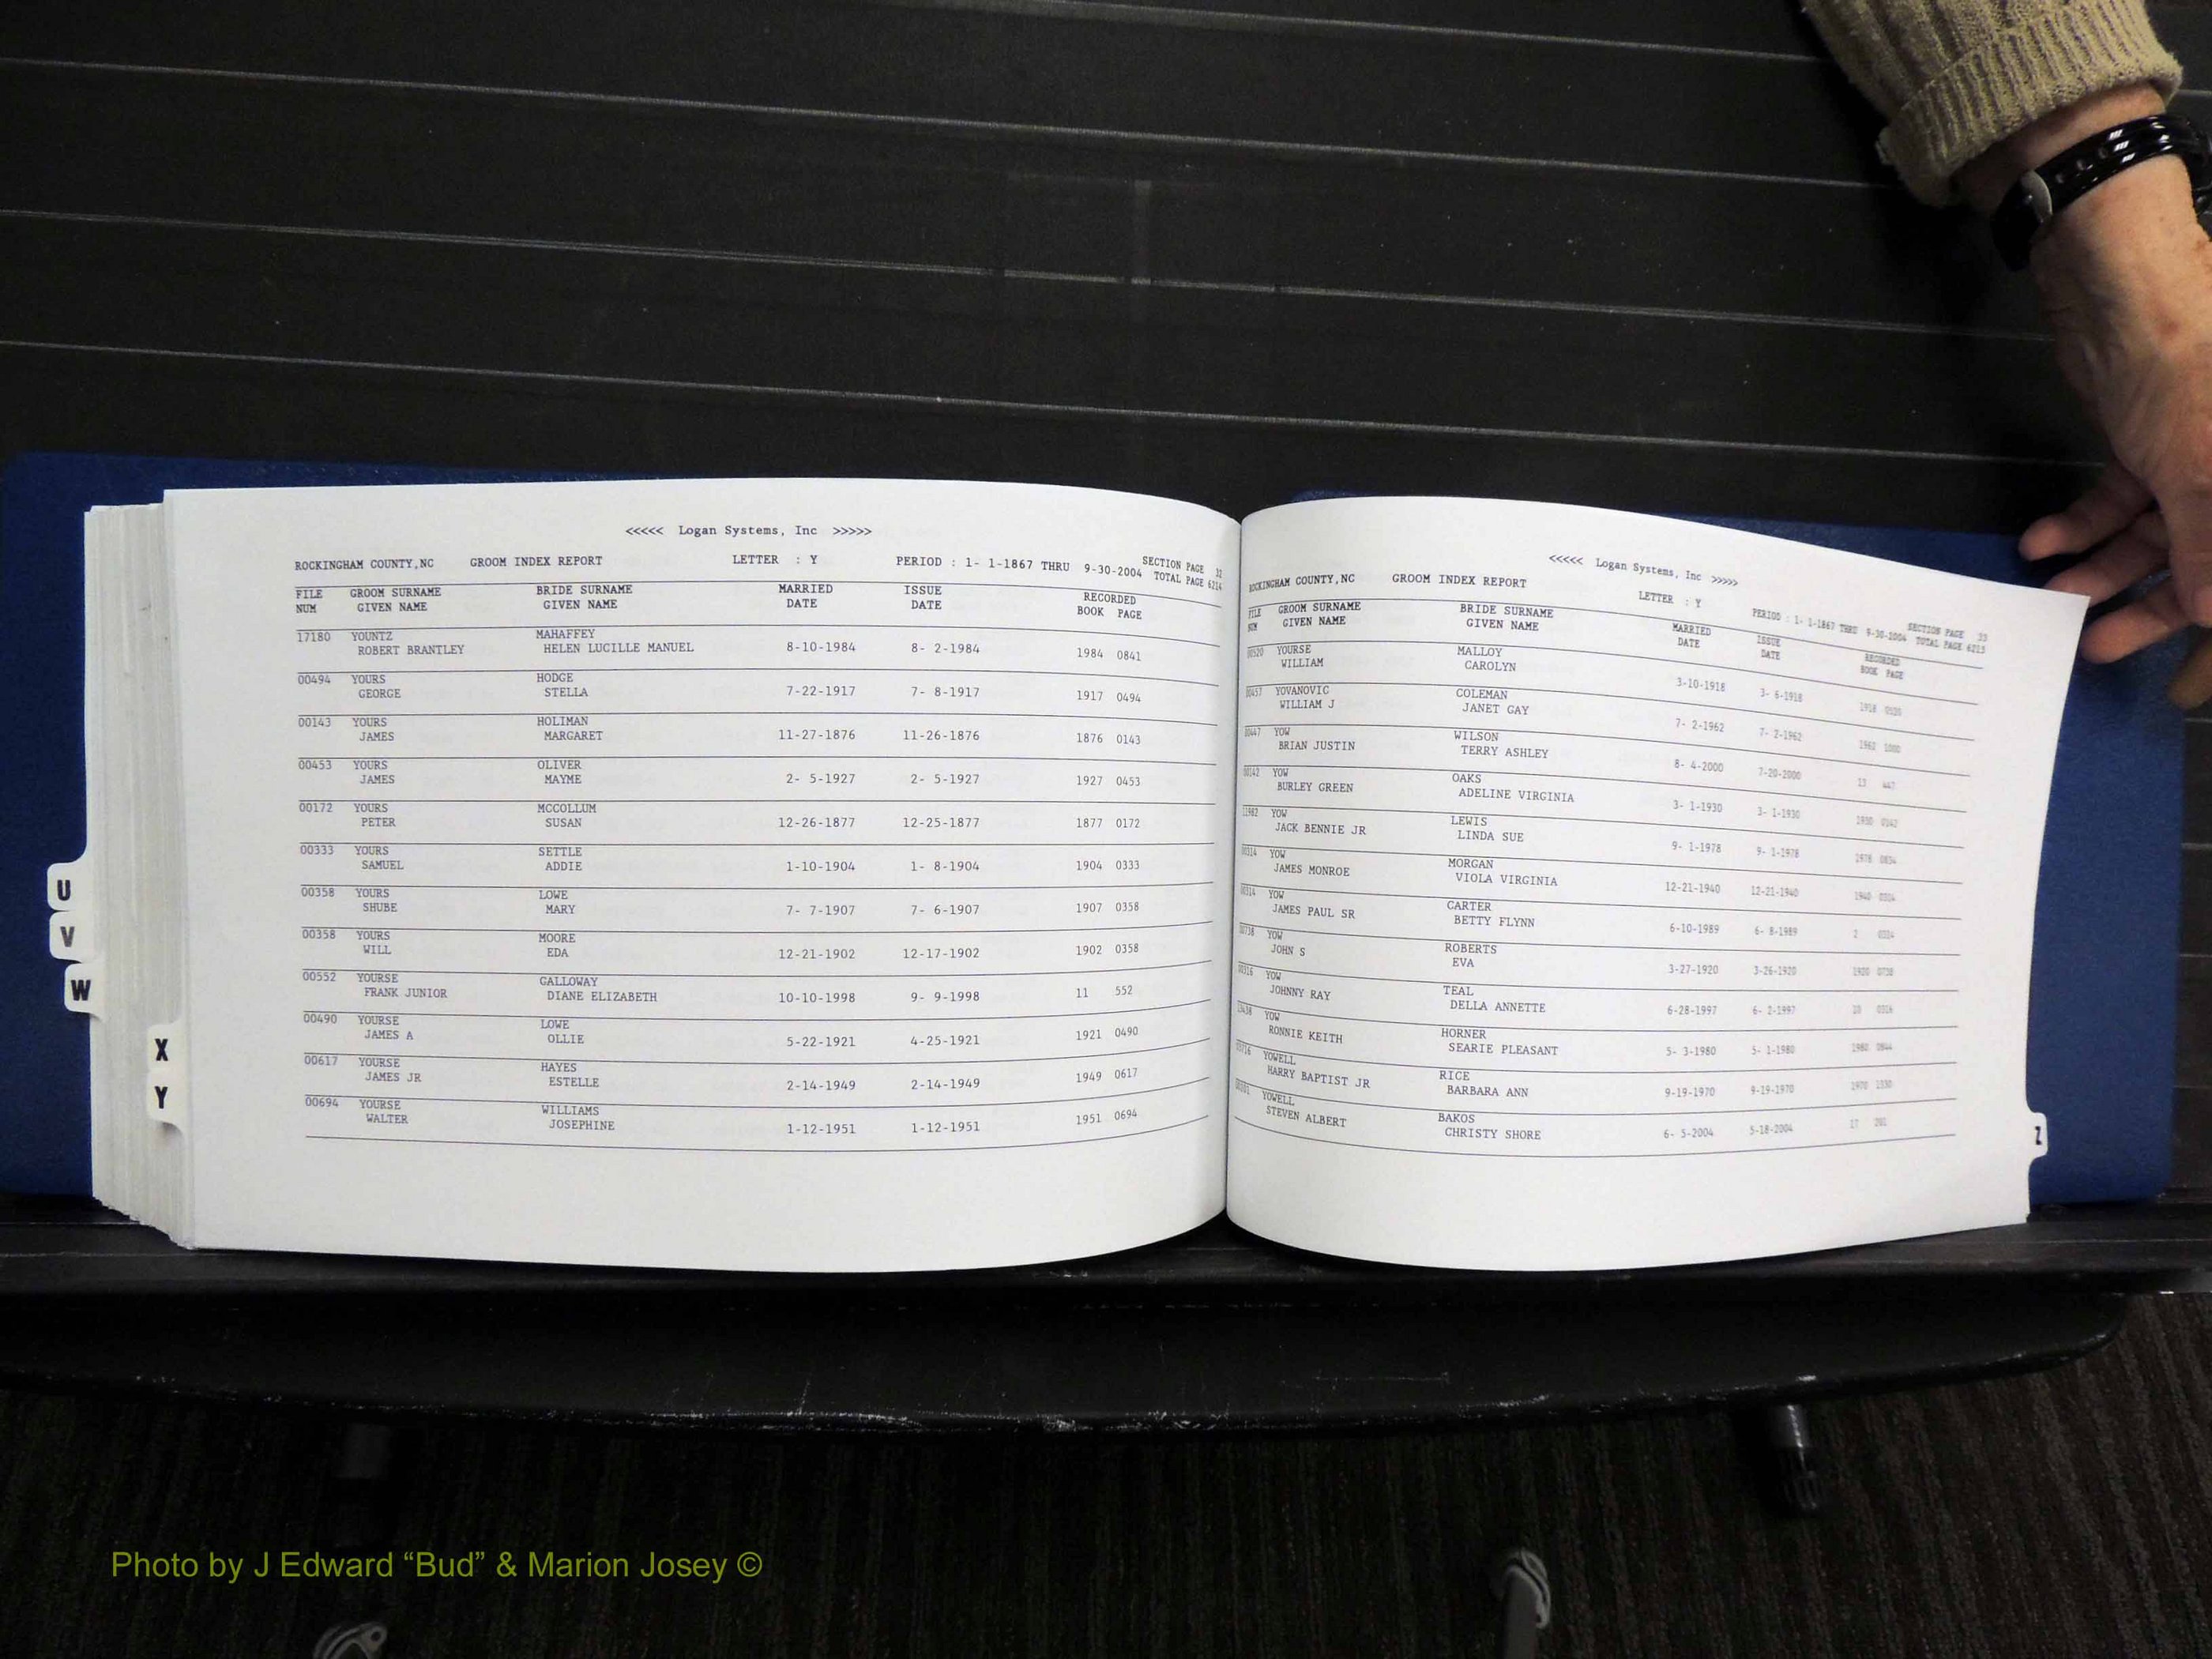 <<<<< Logan Systems, Inc >>>>>
ROCKINGHAM COUNTY,NC GROOM INDEX REPORT LETTER : Y PERIOD : 1- 1-1867 THRU 9-30-2004 SECTION PAGE 32
TOTAL PAGE 6214
FILE GROOM SURNAME BRIDE SURNAME MARRIED ISSUE RECORDED
NUM GIVEN NAME GIVEN NAME DATE DATE BOOK PAGE
17180 YOUNTZ MAHAFFEY
ROBERT BRANTLEY HELEN LUCILLE MANUEL 8-10-1984 8- 2-1984 1984 0841
00494 YOURS HODGE
GEORGE STELLA 7-22-1917 7- 8-1917 1917 0494
00143 YOURS HOLIMAN
JAMES MARGARET 11-27-1876 11-26-1876 1876 0143
00453 YOURS OLIVER
JAMES MAYME 2- 5-1927 2- 5-1927 1927 0453
00172 YOURS MCCOLLUM
PETER SUSAN 12-26-1877 12-25-1877 1877 0172
00333 YOURS SETTLE
SAMUEL ADDIE 1-10-1904 1- 8-1904 1904 0333
00358 YOURS LOWE
SHUBE MARY 7- 7-1907 7- 6-1907 1907 0358
00358 YOURS MOORE
WILL EDA 12-21-1902 12-17-1902 1902 0358
00552 YOURSE GALLOWAY
FRANK JUNIOR DIANE ELIZABETH 10-10-1998 9- 9-1998 11 552
00490 YOURSE LOWE
JAMES A OLLIE 5-22-1921 4-25-1921 1921 0490
00617 YOURSE HAYES
JAMES JR ESTELLE 2-14-1949 2-14-1949 1949 0617
00694 YOURSE WILLIAMS
WALTER JOSEPHINE 1-12-1951 1-12-1951 1951 0694
U
V
W
X
Y
<<<<< Logan Systems, Inc >>>>>
ROCKINGHAM COUNTY,NC GROOM INDEX REPORT LETTER : Y PERIOD : 1- 1-1867 THRU 9-30-2004 SECTION PAGE 33
TOTAL PAGE 6215
FILE GROOM SURNAME BRIDE SURNAME MARRIED ISSUE RECORDED
NUM GIVEN NAME GIVEN NAME DATE DATE BOOK PAGE
00520 YOURSE MALLOY
WILLIAM CAROLYN 3-10-1918 3- 6-1918 1918 0520
YOVANOVIC COLEMAN
WILLIAM J JANET GAY 7- 2-1962 7- 2-1962 1962
00447 YOW WILSON
BRIAN JUSTIN TERRY ASHLEY 8- 4-2000 7-20-2000 13 447
00142 YOW OAKS
BURLEY GREEN ADELINE VIRGINIA 3- 1-1930 3- 1-1930 1930 0142
YOW LEWIS
JACK BENNIE JR LINDA SUE 9- 1-1978 9- 1-1978 1978
YOW MORGAN
JAMES MONROE VIOLA VIRGINIA 12-21-1940 12-21-1940 1940
YOW CARTER
JAMES PAUL SR BETTY FLYNN 6-10-1989 6- 8-1989 2
00738 YOW ROBERTS
JOHN S EVA 3-27-1920 3-26-1920 1920 0738
00316 YOW TEAL
JOHNNY RAY DELLA ANNETTE 6-28-1997 6- 2-1997 10 0316
YOW HORNER
RONNIE KEITH SEARIE PLEASANT 5- 3-1980 5- 1-1980 1980
YOWELL RICE
HARRY BAPTIST JR BARBARA ANN 9-19-1970 9-19-1970 1970
YOWELL BAKOS
STEVEN ALBERT CHRISTY SHORE 6- 5-2004 5-18-2004 17
Z
Photo by J Edward “Bud” & Marion Josey ©